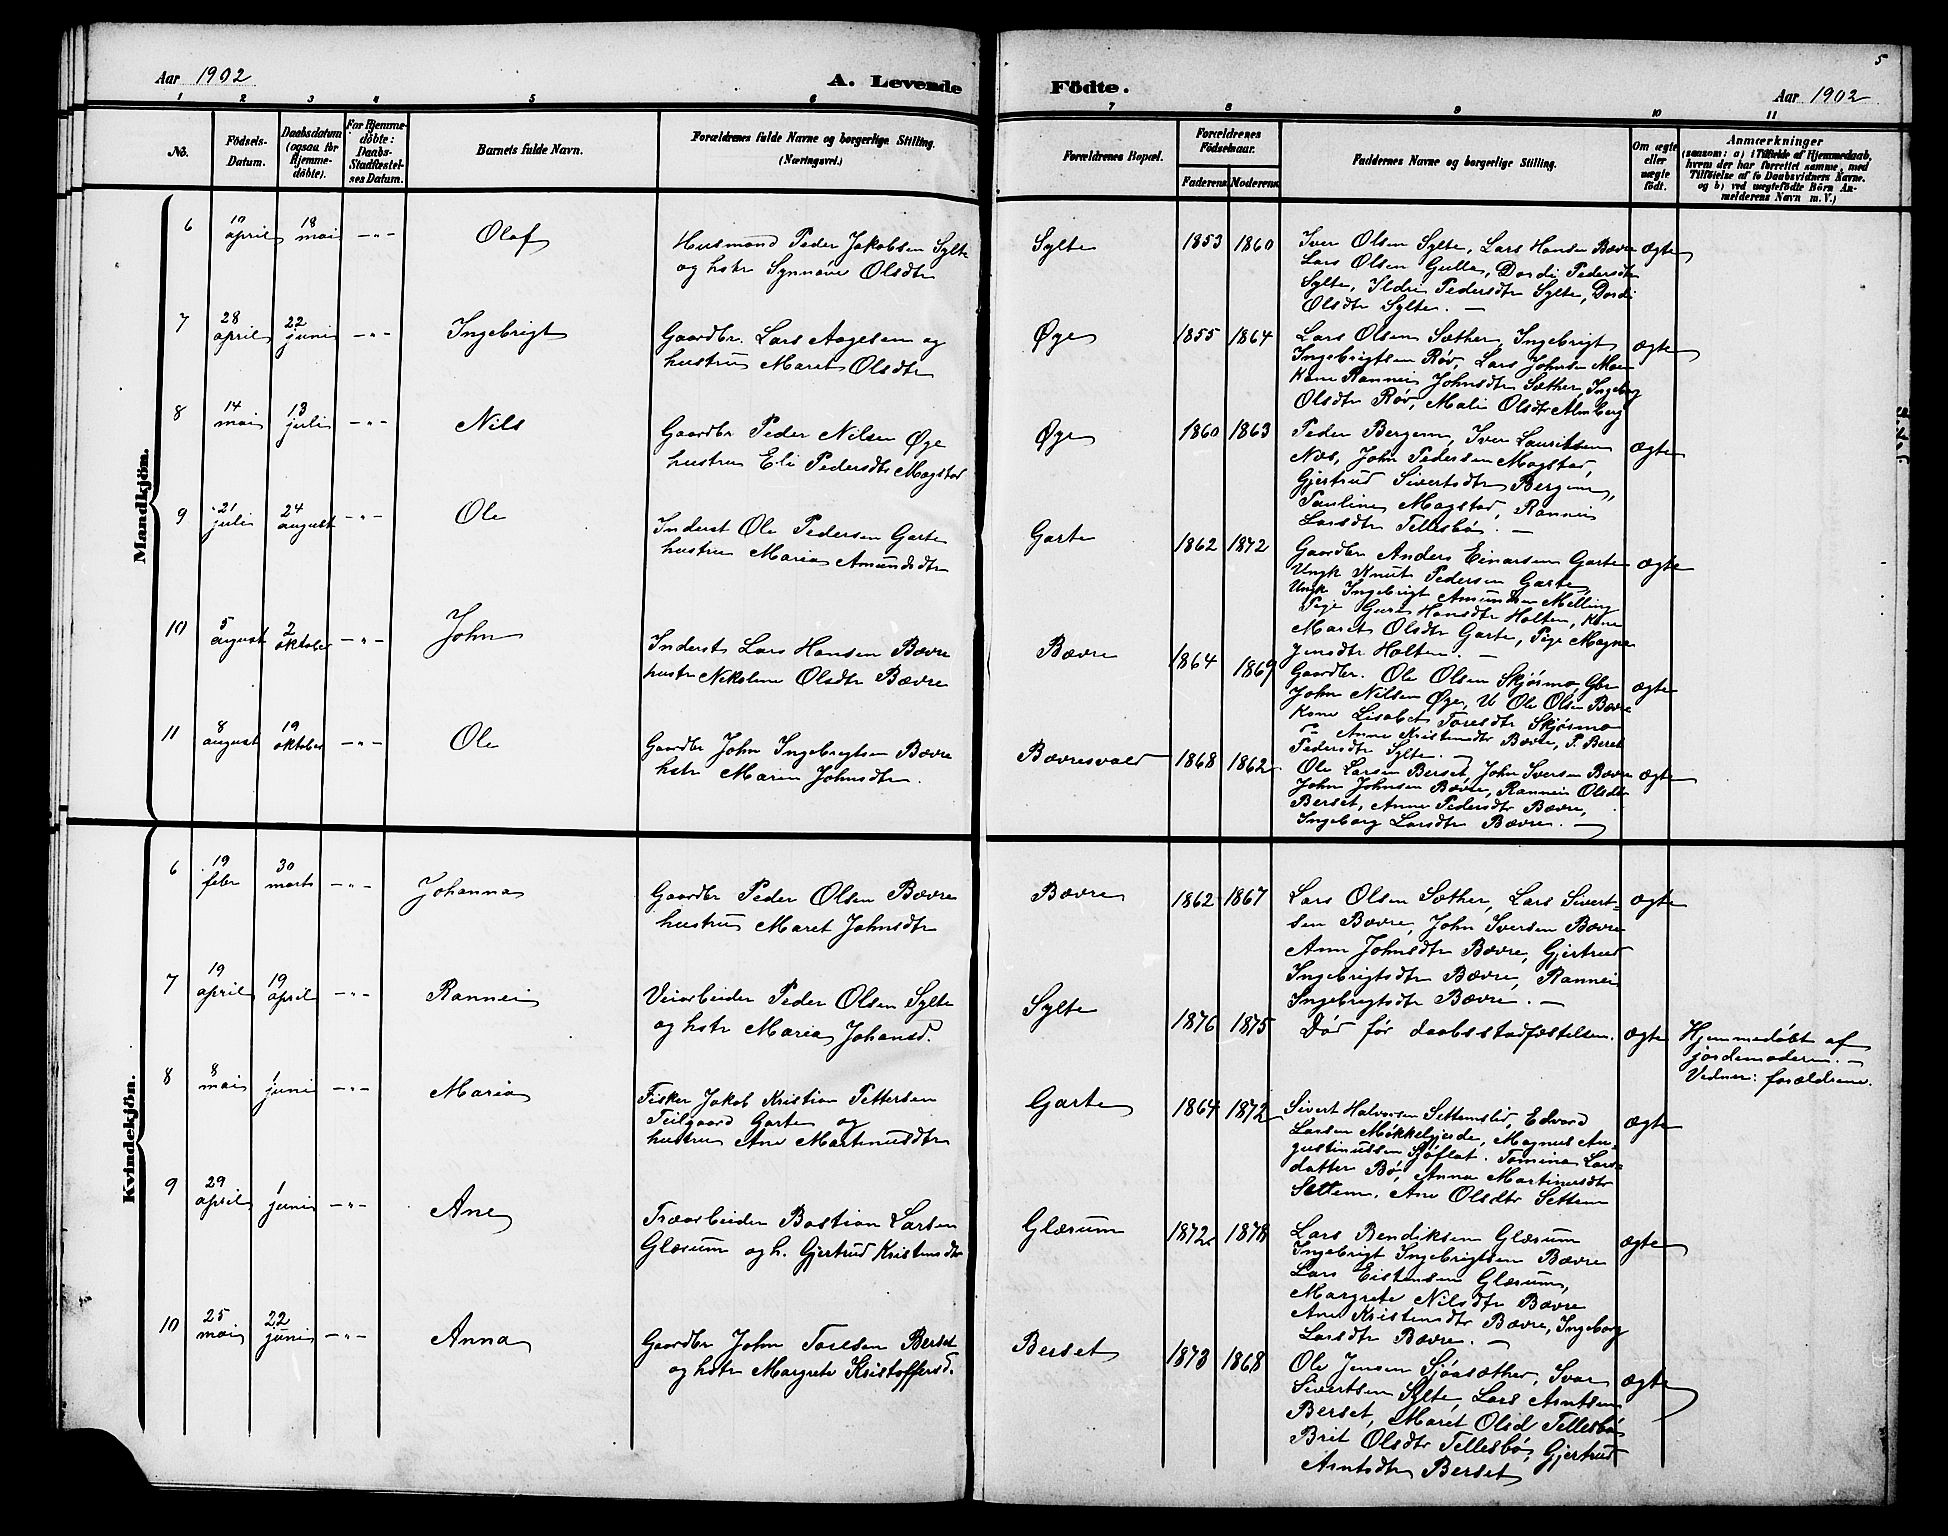 Aar 1902
A. Levende
Födte.
5
Aar 1902
1 2 3 4 5 6 7 8 9 10 11
No.
Födsels-
Datum.
Daabsdatum
(ogsaa for
Hjemme-
döbte).
For Hjemme-
döbte:
Daabs-
Stadfæstel-
ses Datum.
Barnets fulde Navn.
Forældrenes fulde Navne og borgerlige Stilling.
(Næringsvei.)
Forældrenes Bopæl.
Forældrenes
Födselsaar.
Faderens Moderens
Faddernes Navne og borgerlige Stilling.
Om ægte
eller
uægte
födt.
Anmærkninger
(saasom: a) i Tilfælde af Hjemmedaab,
hvem der har forrettet samme, med
Tilföielse af to Daabsvidners Navne.
og b) ved uægtefödte Börn An-
melderens Navn m. V.)
Mandkjön.
6
19 april
18 mai
-"-
Olaf
Husmand Peder Jakobsen Sylte
og hstr Synnøve Olsdtr
Sylte
1853 1860
Iver Olsen Sylte, Lars Hansen Bævre
Lars Olsen Gulla, Dordi Pedersdtr
Sylte, Ildri Pedersdtr Sylte, Dordi
Olsdtr Sylte. —
ægte
7
28 april
22 juni
-"-
Ingebrigt
Gaardbr. Lars Aagesen og
hustru Maret Olsdtr
Øye
1855 1864
Lars Olsen Sæther, Ingebrigt
Ingebrigtsen Røv, Lars Johnsen Moe
Kone Rannei Johnsdtr Sæther, Ingeborg
Olsdtr Røv, Mali Olsdtr Almberg
ægte
8
14 mai
13 juli
-"-
Nils
Gaardbr Peder Nilsen Øye
hustru Eli Pedersdtr Magstad
Øye
1860 1863
Peder Bergem, Iver Lauritsen
Næs, John Pedersen Mogstad,
Gjertrud Sivertsdtr Bergem,
Pauline Mogstad, Rannei
Larsdtr Tellesbø. —
ægte
9
21 juli
24 august
-"-
Ole
Inderst Ole Pedersen Garte
hustru Maria Amundsdtr
Garte
1862 1872
Gaardbr Anders Einarsen Garte
Ungk Knut Pedersen Garte,
Ungk Ingebrigt Amundsen Melling
Pige Guri Hansdtr Holten, Kone
Maret Olsdtr Garte, Pige Magna
Jensdtr Holten. —
ægte
10
5 august
2 oktober
-"-
John
Inderst Lars Hansen Bævre
hustr Nikoline Olsdtr Bævre
Bævre
1864 1869
Gaardbr. Ole Olsen Skjørmo Gbr
John Nilsen Øye, U Ole Olsen Bævre
Kone Lisabet Toresdtr Skjørmo
P. Anne Kristensdtr Bævre, P. Beret
Pedersdtr Sylte. —
ægte
11
8 august
19 oktober
-"-
Ole
Gaardbr John Ingebrigtsen Bævre
hstr Maren Johnsdtr.
Bævresvald
1868 1862
Ole Larsen Berset, John Iversen Bævre
John Johnsen Bævre, Rannei Olsdtr
Berset, Anne Pedersdtr Bævre,
Ingeborg Larsdtr Bævre. —
ægte
Kvindekjön.
6
19 febr
30 marts
-"-
Johanna
Gaardbr Peder Olsen Bævre
hustru Maret Johnsdtr
Bævre
1862 1867
Lars Olsen Sæther, Lars Sivert-
sen Bævre, John Iversen Bævre
Ann Johnsdtr Bævre, Gjertrud
Ingebrigtsdtr Bævre, Rannei
Ingebrigtsdtr Bævre. —
ægte
7
19 april
19 april
-"-
Rannei
Veiarbeider Peder Olsen Sylte
og hstr Maria Johansd.
Sylte
1876 1875
Død før daabsstadfæstelsen.
ægte
Hjemmedøbt af
jordemoderen. —
Vidner: forældrene.
8
8 mai
1 juni
-"-
Maria
Fisker Jakob Kristian Pettersen
Teilgaard Garte og
hustru Ane Martinusdtr
Garte
1864 1872
Sivert Halvorsen Settemslid, Edvard
Larsen Møkkelgjerde, Magnus Au-
gustinussen Sjøflat. Tomina Lars-
datter Bø, Anna Martinusdtr
Settem, Ane Olsdtr Settem
ægte
9
29 april
1 juni
-"-
Ane
Træarbeider Bastian Larsen
Glærum og h. Gjertrud Kristensdtr
Glærum
1872 1878
Lars Bendiksen Glærum
Ingebrigt Ingebrigtsen Bævre
Lars Eistensen Glærum,
Margrete Nilsdtr Bævre
Ane Kristensdtr Bævre, Ingeborg
Larsdtr Bævre. —
ægte
10
25 mai
22 juni
-"-
Anna
Gaardbr John Toresen Berset
og hstr Margrete Kristoffersd.
Berset
1873 1868
Ole Jensen Sjøasæther, Ivar
Sivertsen Sylte, Lars Arntsen
Berset, Maret Olsd Tellesbø
Brit Olsdtr Tellesbø, Gjertrud
Arntsdtr Berset
ægte